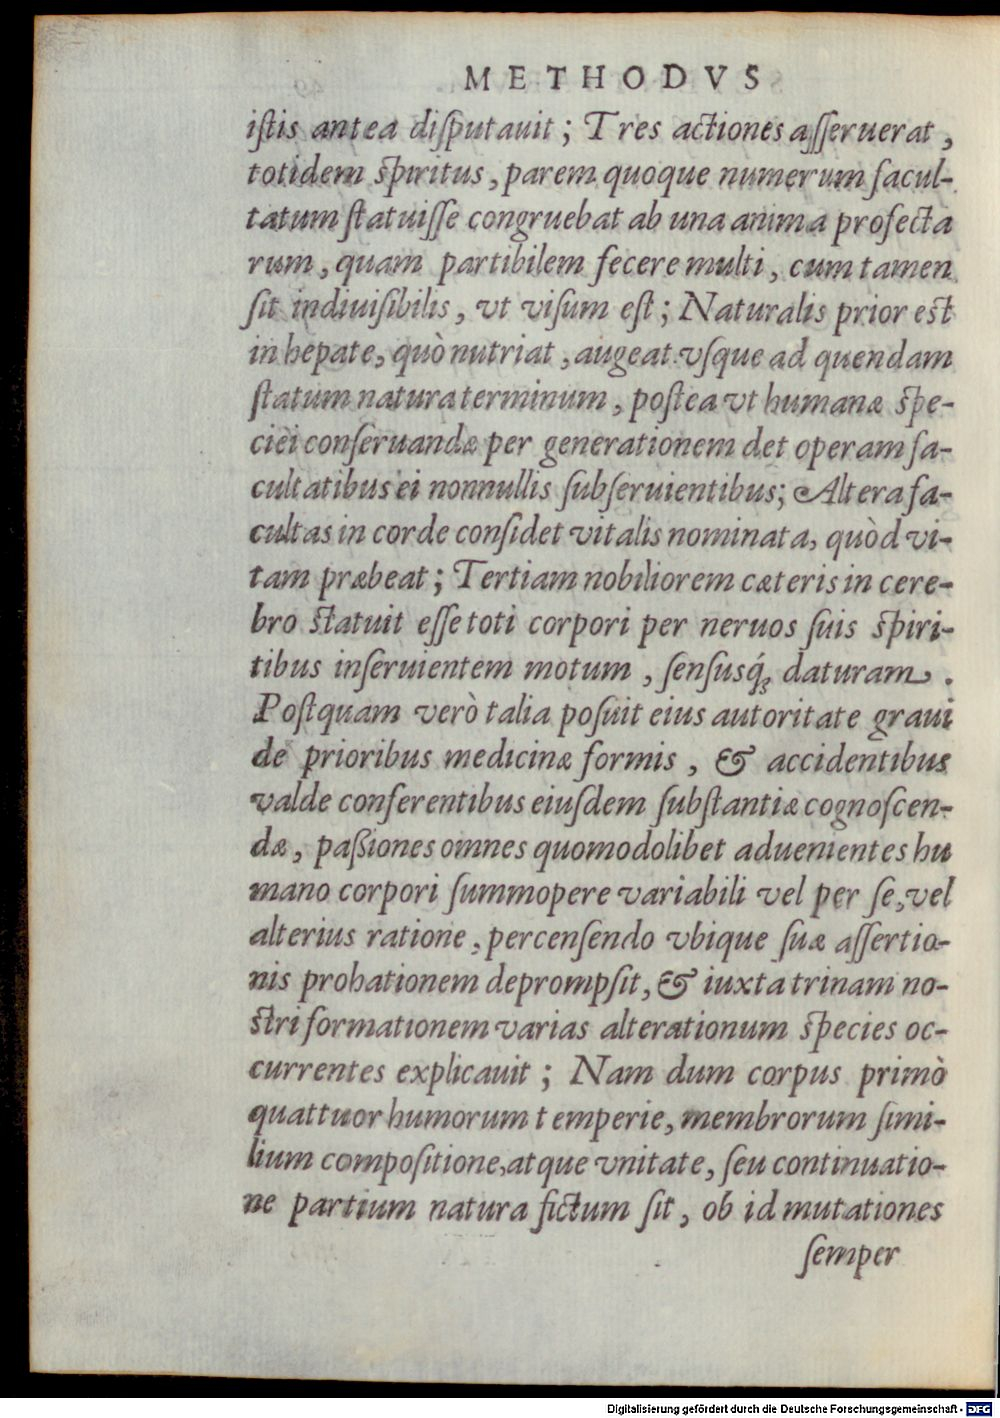 METHODVS
iſtis antea diſputauit; Tres actiones aſſeruerat,
totidem ſpiritus, parem quoque numerum facul-
tatum ſtatuiſſe congruebat ab una anima profecta
rum, quam partibilem fecere multi, cum tamen
ſit indiuiſibilis, vt viſum eſt; Naturalis prior eſt
in hepate, quò nutriat, augeat vſque ad quendam
ſtatum natura terminum, poſtea vt humanæ ſpe-
ciei conſeruandæ per generationem det operam fa-
cultatibus ei nonnullis ſubſeruientibus; Altera fa-
cultas in corde conſidet vitalis nominata, quòd vi-
tam præbeat; Tertiam nobiliorem cæteris in cere-
bro ſtatuit eſſe toti corpori per neruos ſuis ſpiri-
tibus inſeruientem motum, ſenſusq́; daturam.
Poſtquam verò talia poſuit eius autoritate graui
de prioribus medicinæ formis, & accidentibus
valde conferentibus eiuſdem ſubſtantiæ cognoſcen-
dæ, paßiones omnes quomodolibet aduenientes hu
mano corpori ſummopere variabili vel per ſe, vel
alterius ratione, percenſendo vbique ſuæ aſſertio-
nis probationem deprompſit, & iuxta trinam no-
ſtri formationem varias alterationum ſpecies oc-
currentes explicauit; Nam dum corpus primò
quattuor humorum temperie, membrorum ſimi-
lium compoſitione, atque vnitate, ſeu continuatio-
ne partium natura fictum ſit, ob id mutationes
ſemper
Digitalisierung gefördert durch die Deutsche Forschungsgemeinschaft - DFG